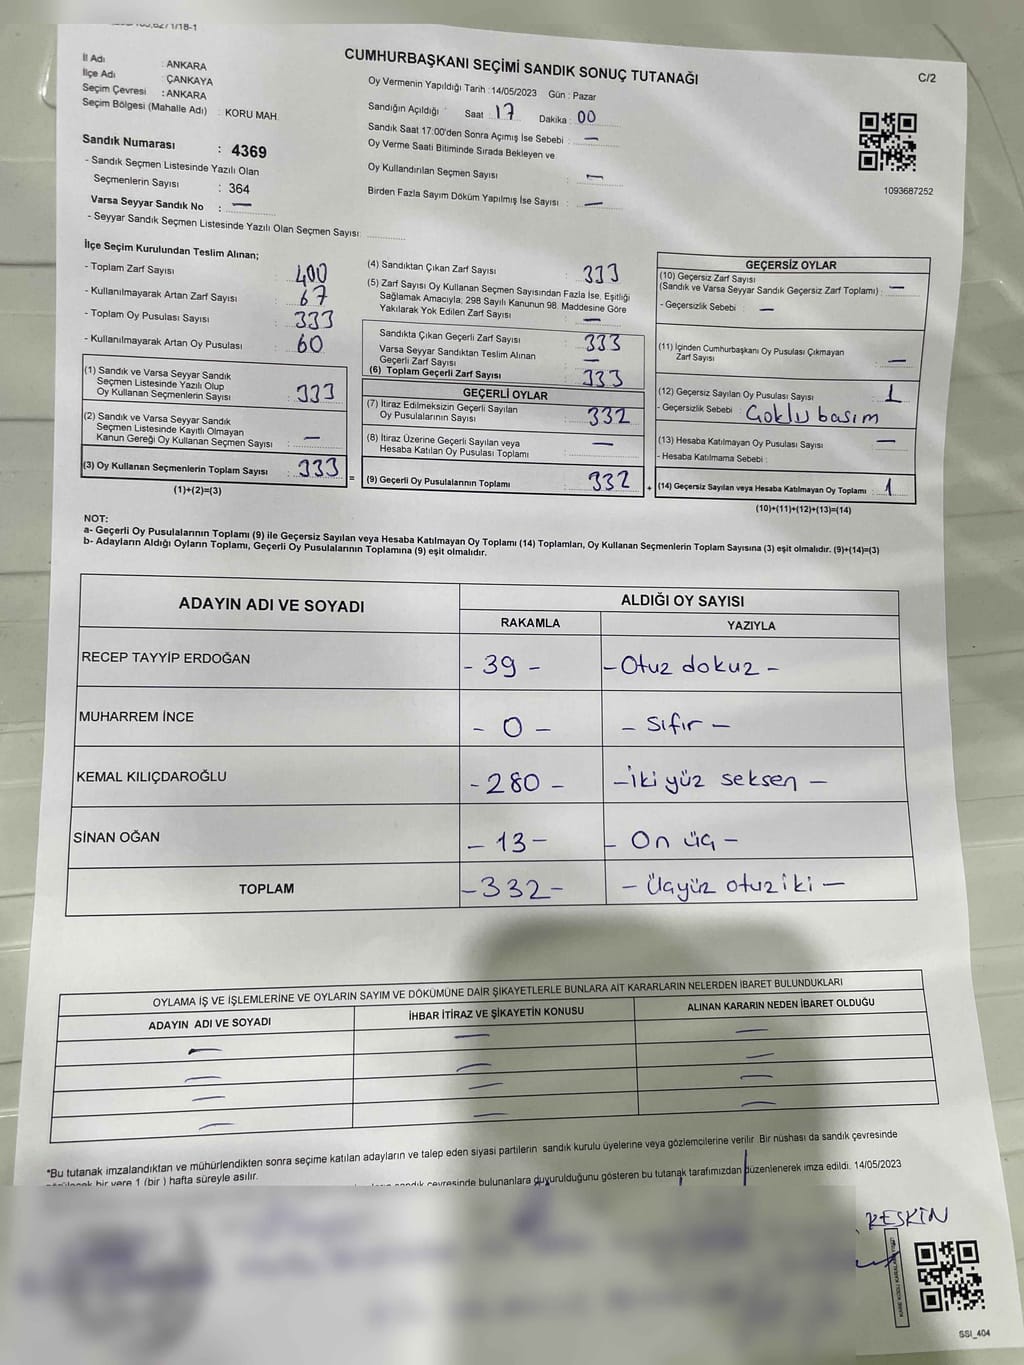 CUMHURBAŞKANI SEÇİMİ SANDIK SONUÇ TUTANAĞI
C/2
İl Adı : ANKARA
İlçe Adı : ÇANKAYA
Seçim Çevresi : ANKARA
Seçim Bölgesi (Mahalle Adı) : KORU MAH.
Sandık Numarası : 4369
- Sandık Seçmen Listesinde Yazılı Olan
Seçmenlerin Sayısı : 364
Varsa Seyyar Sandık No : —
- Seyyar Sandık Seçmen Listesinde Yazılı Olan Seçmen Sayısı:
Oy Vermenin Yapıldığı Tarih : 14/05/2023 Gün : Pazar
Sandığın Açıldığı : Saat 17 Dakika : 00
Sandık Saat 17:00'den Sonra Açımış İse Sebebi : —
Oy Verme Saati Bitiminde Sırada Bekleyen ve
Oy Kullandırılan Seçmen Sayısı : —
Birden Fazla Sayım Döküm Yapılmış İse Sayısı : —
1093687252
İlçe Seçim Kurulundan Teslim Alınan;
- Toplam Zarf Sayısı : 400
- Kullanılmayarak Artan Zarf Sayısı : 67
- Toplam Oy Pusulası Sayısı : 333
- Kullanılmayarak Artan Oy Pusulası : 60
(1) Sandık ve Varsa Seyyar Sandık
Seçmen Listesinde Yazılı Olup
Oy Kullanan Seçmenlerin Sayısı : 333
(2) Sandık ve Varsa Seyyar Sandık
Seçmen Listesinde Kayıtlı Olmayan
Kanun Gereği Oy Kullanan Seçmen Sayısı : —
(3) Oy Kullanan Seçmenlerin Toplam Sayısı : 333
(1)+(2)=(3)
(4) Sandıktan Çıkan Zarf Sayısı : 333
(5) Zarf Sayısı Oy Kullanan Seçmen Sayısından Fazla İse, Eşitliği
Sağlamak Amacıyla, 298 Sayılı Kanunun 98. Maddesine Göre
Yakılarak Yok Edilen Zarf Sayısı : —
Sandıkta Çıkan Geçerli Zarf Sayısı : 333
Varsa Seyyar Sandıktan Teslim Alınan
Geçerli Zarf Sayısı : —
(6) Toplam Geçerli Zarf Sayısı : 333
GEÇERLİ OYLAR
(7) İtiraz Edilmeksizin Geçerli Sayılan
Oy Pusulalarının Sayısı : 332
(8) İtiraz Üzerine Geçerli Sayılan veya
Hesaba Katılan Oy Pusulası Toplamı : —
= (9) Geçerli Oy Pusulalarının Toplamı : 332
GEÇERSİZ OYLAR
(10) Geçersiz Zarf Sayısı
(Sandık ve Varsa Seyyar Sandık Geçersiz Zarf Toplamı) : —
- Geçersizlik Sebebi : —
(11) İçinden Cumhurbaşkanı Oy Pusulası Çıkmayan
Zarf Sayısı : —
(12) Geçersiz Sayılan Oy Pusulası Sayısı : 1
- Geçersizlik Sebebi : Çoklu basım
(13) Hesaba Katılmayan Oy Pusulası Sayısı : —
- Hesaba Katılmama Sebebi :
+ (14) Geçersiz Sayılan veya Hesaba Katılmayan Oy Toplamı : 1
(10)+(11)+(12)+(13)=(14)
NOT:
a- Geçerli Oy Pusulalarının Toplamı (9) ile Geçersiz Sayılan veya Hesaba Katılmayan Oy Toplamı (14) Toplamları, Oy Kullanan Seçmenlerin Toplam Sayısına (3) eşit olmalıdır. (9)+(14)=(3)
b- Adayların Aldığı Oyların Toplamı, Geçerli Oy Pusulalarının Toplamına (9) eşit olmalıdır.
ADAYIN ADI VE SOYADI ALDIĞI OY SAYISI
RAKAMLA YAZIYLA
RECEP TAYYİP ERDOĞAN - 39 - - Otuz dokuz -
MUHARREM İNCE - 0 - - Sıfır -
KEMAL KILIÇDAROĞLU - 280 - - İki yüz seksen -
SİNAN OĞAN - 13 - - On üç -
TOPLAM - 332 - - Üçyüz otuz iki -
OYLAMA İŞ VE İŞLEMLERİNE VE OYLARIN SAYIM VE DÖKÜMÜNE DAİR ŞİKAYETLERLE BUNLARA AİT KARARLARIN NELERDEN İBARET BULUNDUKLARI
ADAYIN ADI VE SOYADI İHBAR İTİRAZ VE ŞİKAYETİN KONUSU ALINAN KARARIN NEDEN İBARET OLDUĞU
— — —
— — —
— — —
— — —
*Bu tutanak imzalandıktan ve mühürlendikten sonra seçime katılan adayların ve talep eden siyasi partilerin sandık kurulu üyelerine veya gözlemcilerine verilir. Bir nüshası da sandık çevresinde
bir yere 1 (bir ) hafta süreyle asılır.
çevresinde bulunanlara duyurulduğunu gösteren bu tutanak tarafımızdan düzenlenerek imza edildi. 14/05/2023
KESKİN
SSI_404